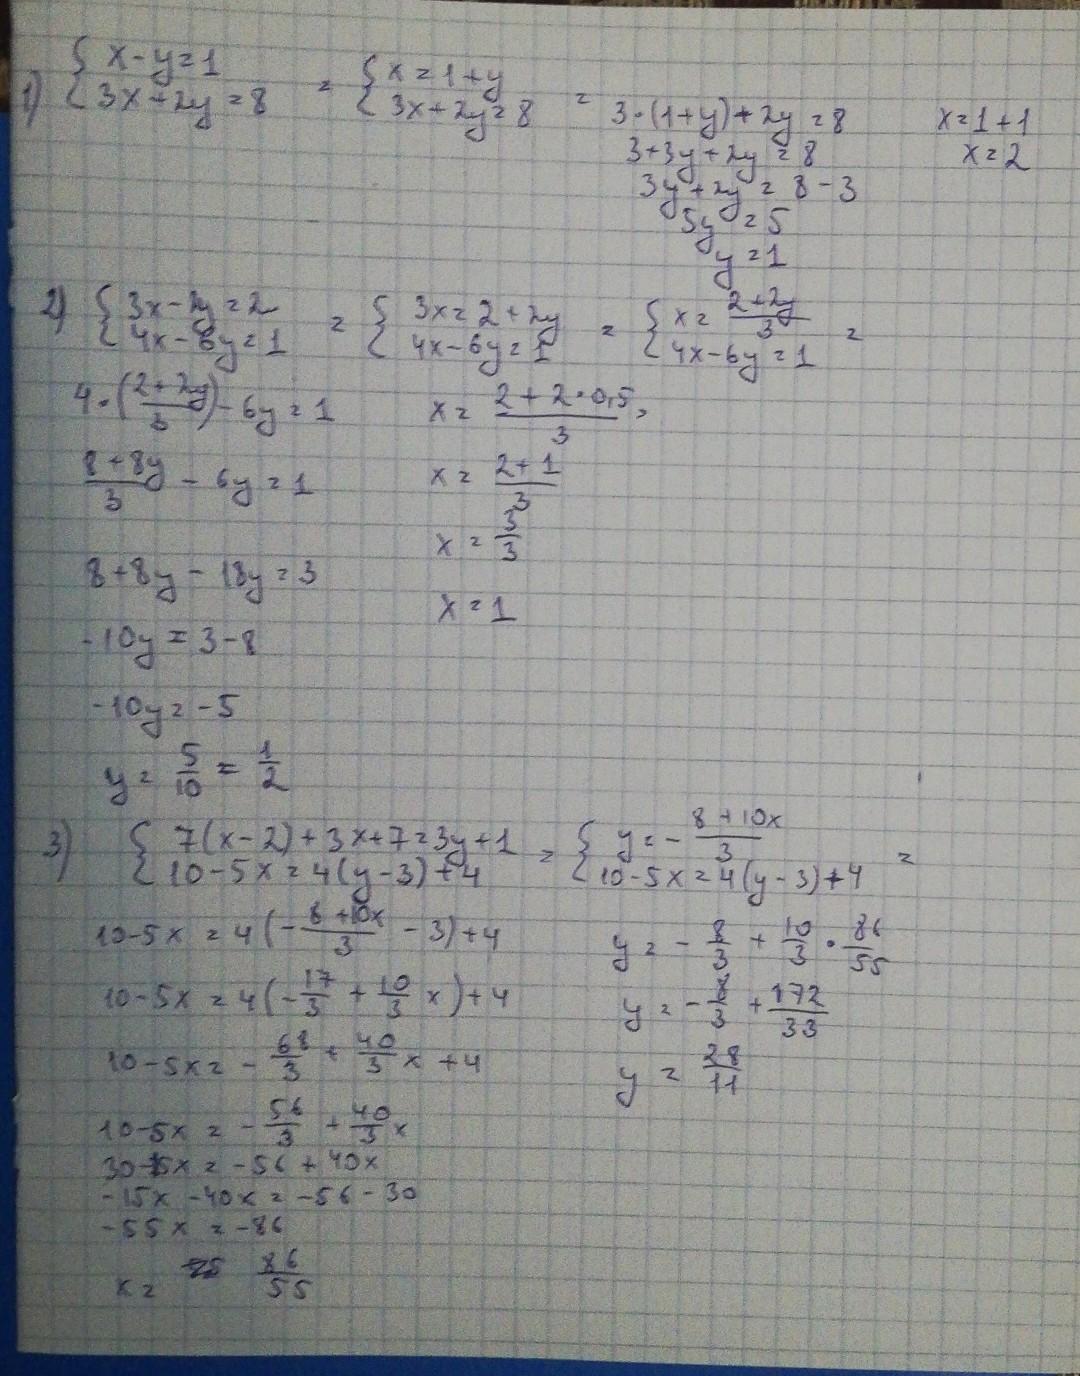 1) { x - y = 1
3x + 2y = 8 = { x = 1 + y
3x + 2y = 8 =
3·(1+y) + 2y = 8
3 + 3y + 2y = 8
3y + 2y = 8 - 3
5y = 5
y = 1
x = 1 + 1
x = 2
2) { 3x - 2y = 2
4x - 6y = 1 = { 3x = 2 + 2y
4x - 6y = 1 = { x = (2+2y)/3
4x - 6y = 1 =
4·((2+2y)/3) - 6y = 1
(8+8y)/3 - 6y = 1
8 + 8y - 18y = 3
-10y = 3 - 8
-10y = -5
y = 5/10 = 1/2
x = (2 + 2·0,5)/3
x = (2+1)/3
x = 3/3
x = 1
3) { 7(x-2) + 3x + 7 = 3y + 1
10 - 5x = 4(y-3) + 4 = { y = - (8+10x)/3
10 - 5x = 4(y-3) + 4 =
10 - 5x = 4(- (8+10x)/3 - 3) + 4
10 - 5x = 4(- 17/3 + 10/3 x) + 4
10 - 5x = - 68/3 + 40/3 x + 4
10 - 5x = - 56/3 + 40/3 x
30 - 15x = -56 + 40x
-15x - 40x = -56 - 30
-55x = -86
x = 86/55
y = - 8/3 + 10/3 · 86/55
y = - 8/3 + 172/33
y = 28/11